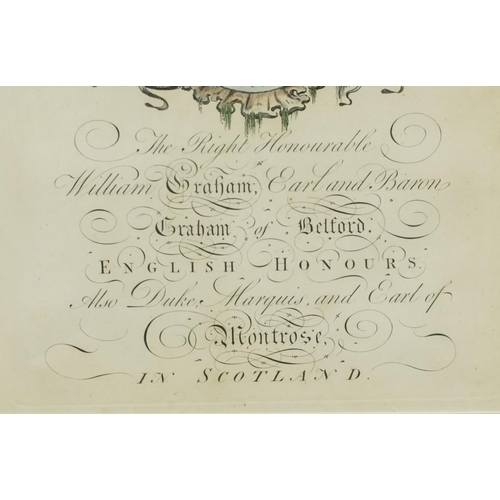 The Right Honourable
William Graham, Earl and Baron
Graham, of Belford.
ENGLISH HONOURS.
Also Duke, Marquis, and Earl of
Montrose,
IN SCOTLAND.